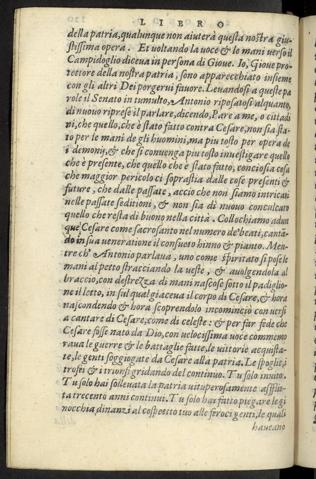 LIBRO
della patria, qualunque non aiuterà questa nostra giu-
stissima opera. Et uoltando la uoce & le mani uerso il
Campidoglio diceua in persona di Gioue. Io, Gioue pro-
tettore della nostra patria, sono apparecchiato insieme
con gli altri Dei porgerui fauore. Leuandosi a queste pa
role il Senato in tumulto, Antonio riposatosi alquanto,
di nuouo riprese il parlare, dicendo, Pare a me, o cittadi
ni, che quello, che è stato fatto contra Cesare, non sia sta-
to per le mani de gli huomini, ma piu tosto per opera de
i demoni, & che si conuenga piu tosto inuestigare quello
che è presente, che quello che è stato fatto, conciosia cosa
che maggior pericolo ci soprastia dalle cose presenti &
future, che dalle passate, accio che non siamo intricati
nelle passate seditioni, & non sia di nuouo conculcato
quello che resta di buono nella città. Collochiamo adun
que Cesare come sacrosanto nel numero de'beati, cantã-
do in sua ueneratione il consueto hinno & pianto. Men-
tre ch' Antonio parlaua, uno come spiritato si pose le
mani al petto stracciando la ueste, & auolgendola al
braccio, con destrezza di mani nascose sotto il padiglio-
ne il letto, in sul qual giaceua il corpo di Cesare, & hora
nascondendo & hora scoprendolo incomincio con uersi
a cantare di Cesare, come di celeste: & per far fede che
Cesare fosse nato da Dio, con uelocissima uoce commemo
raua le guerre & le battaglie fatte, le uittorie acquista-
te, le genti soggiogate da Cesare alla patria. Le spoglie, i
trofei & i trionfi gridando del continuo. Tu solo inuitto.
Tu solo hai solleuata la patria uituperosamente afflit-
ta trecento anni continui. Tu solo hai fatto piegare le gi
nocchia dinanzi al cospetto tuo alle feroci genti, le quali
haueano